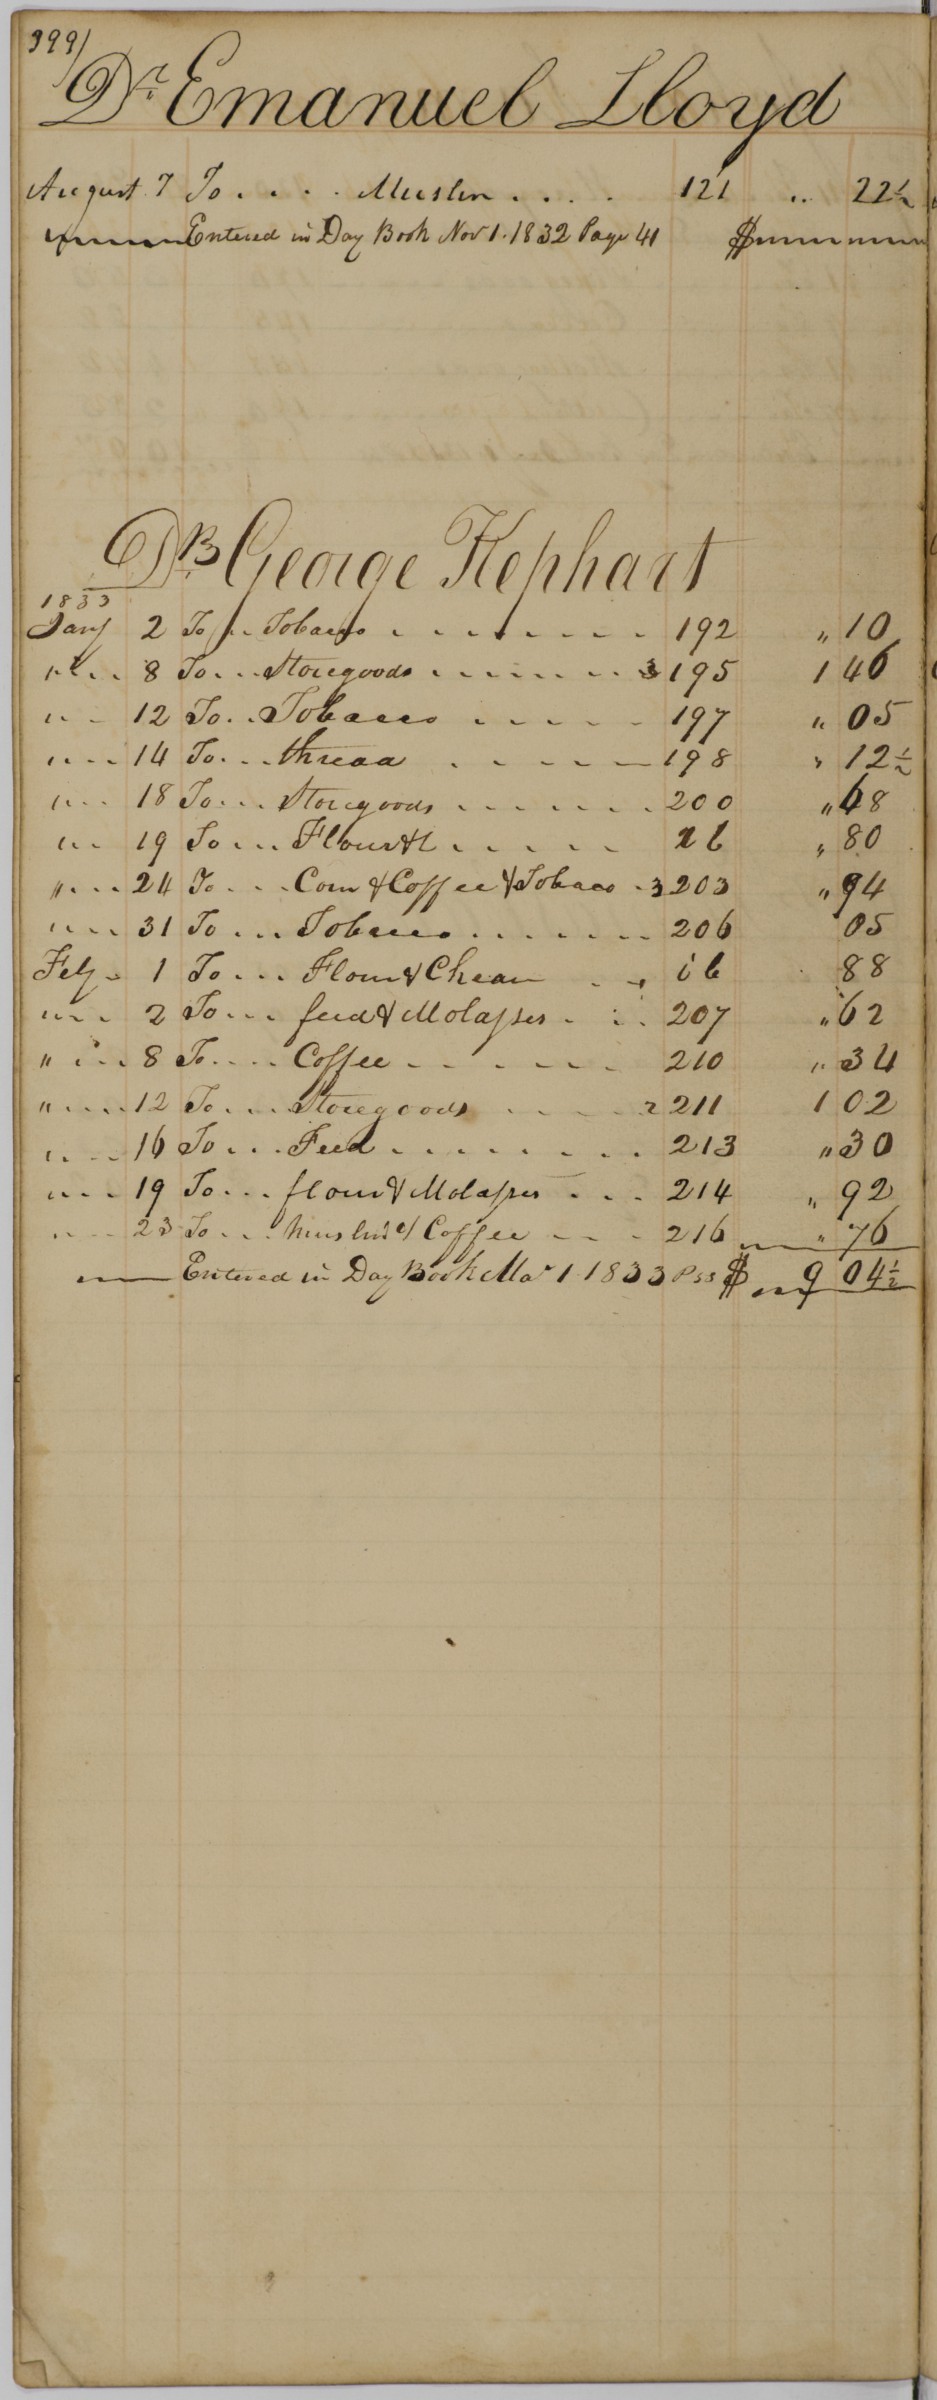 399)
Dr. Emanuel Lloyd
August 7 To . . . . Muslin . . . . 121 .. 22½
Entered in Day Book Nov 1. 1832 Page 41 $
DR George Kephart
1833
Jany 2 To . . Tobacco . . . . . . . . 192 " 10
" . . 8 To . . . Storegoods . . . . . . 3 195 1 46
" . . 12 To . . Tobacco . . . . . 197 " 05
" . . 14 To . . . thread . . . . . 198 " 12½
" . . 18 To . . . Storegoods . . . . . . 200 " 68
" . . 19 To . . . Flour &c . . . . . ib " 80
" . . . 24 To . . . Corn & Coffee & Tobaco . 3 203 " 94
" . . 31 To . . . Tobacco . . . . . . . 206 05
Feby 1 To . . . Flour & . . ib 88
" . . 2 To . . . feed & Molasses . . . 207 " 62
" . . . 8 To . . . . Coffee . . . . . . 210 " 34
" . . . . 12 To . . . . Storegoods . . . . 2 211 1 02
" . . . 16 To . . . Feed . . . . . . . . 213 " 30
" . . . 19 To . . . flour & Molasses . . . 214 " 92
" . . . 23 To . . . Muslin & Coffee . . . 216 " 76
Entered in Day Book Mar 1 1833 $ 9 04½